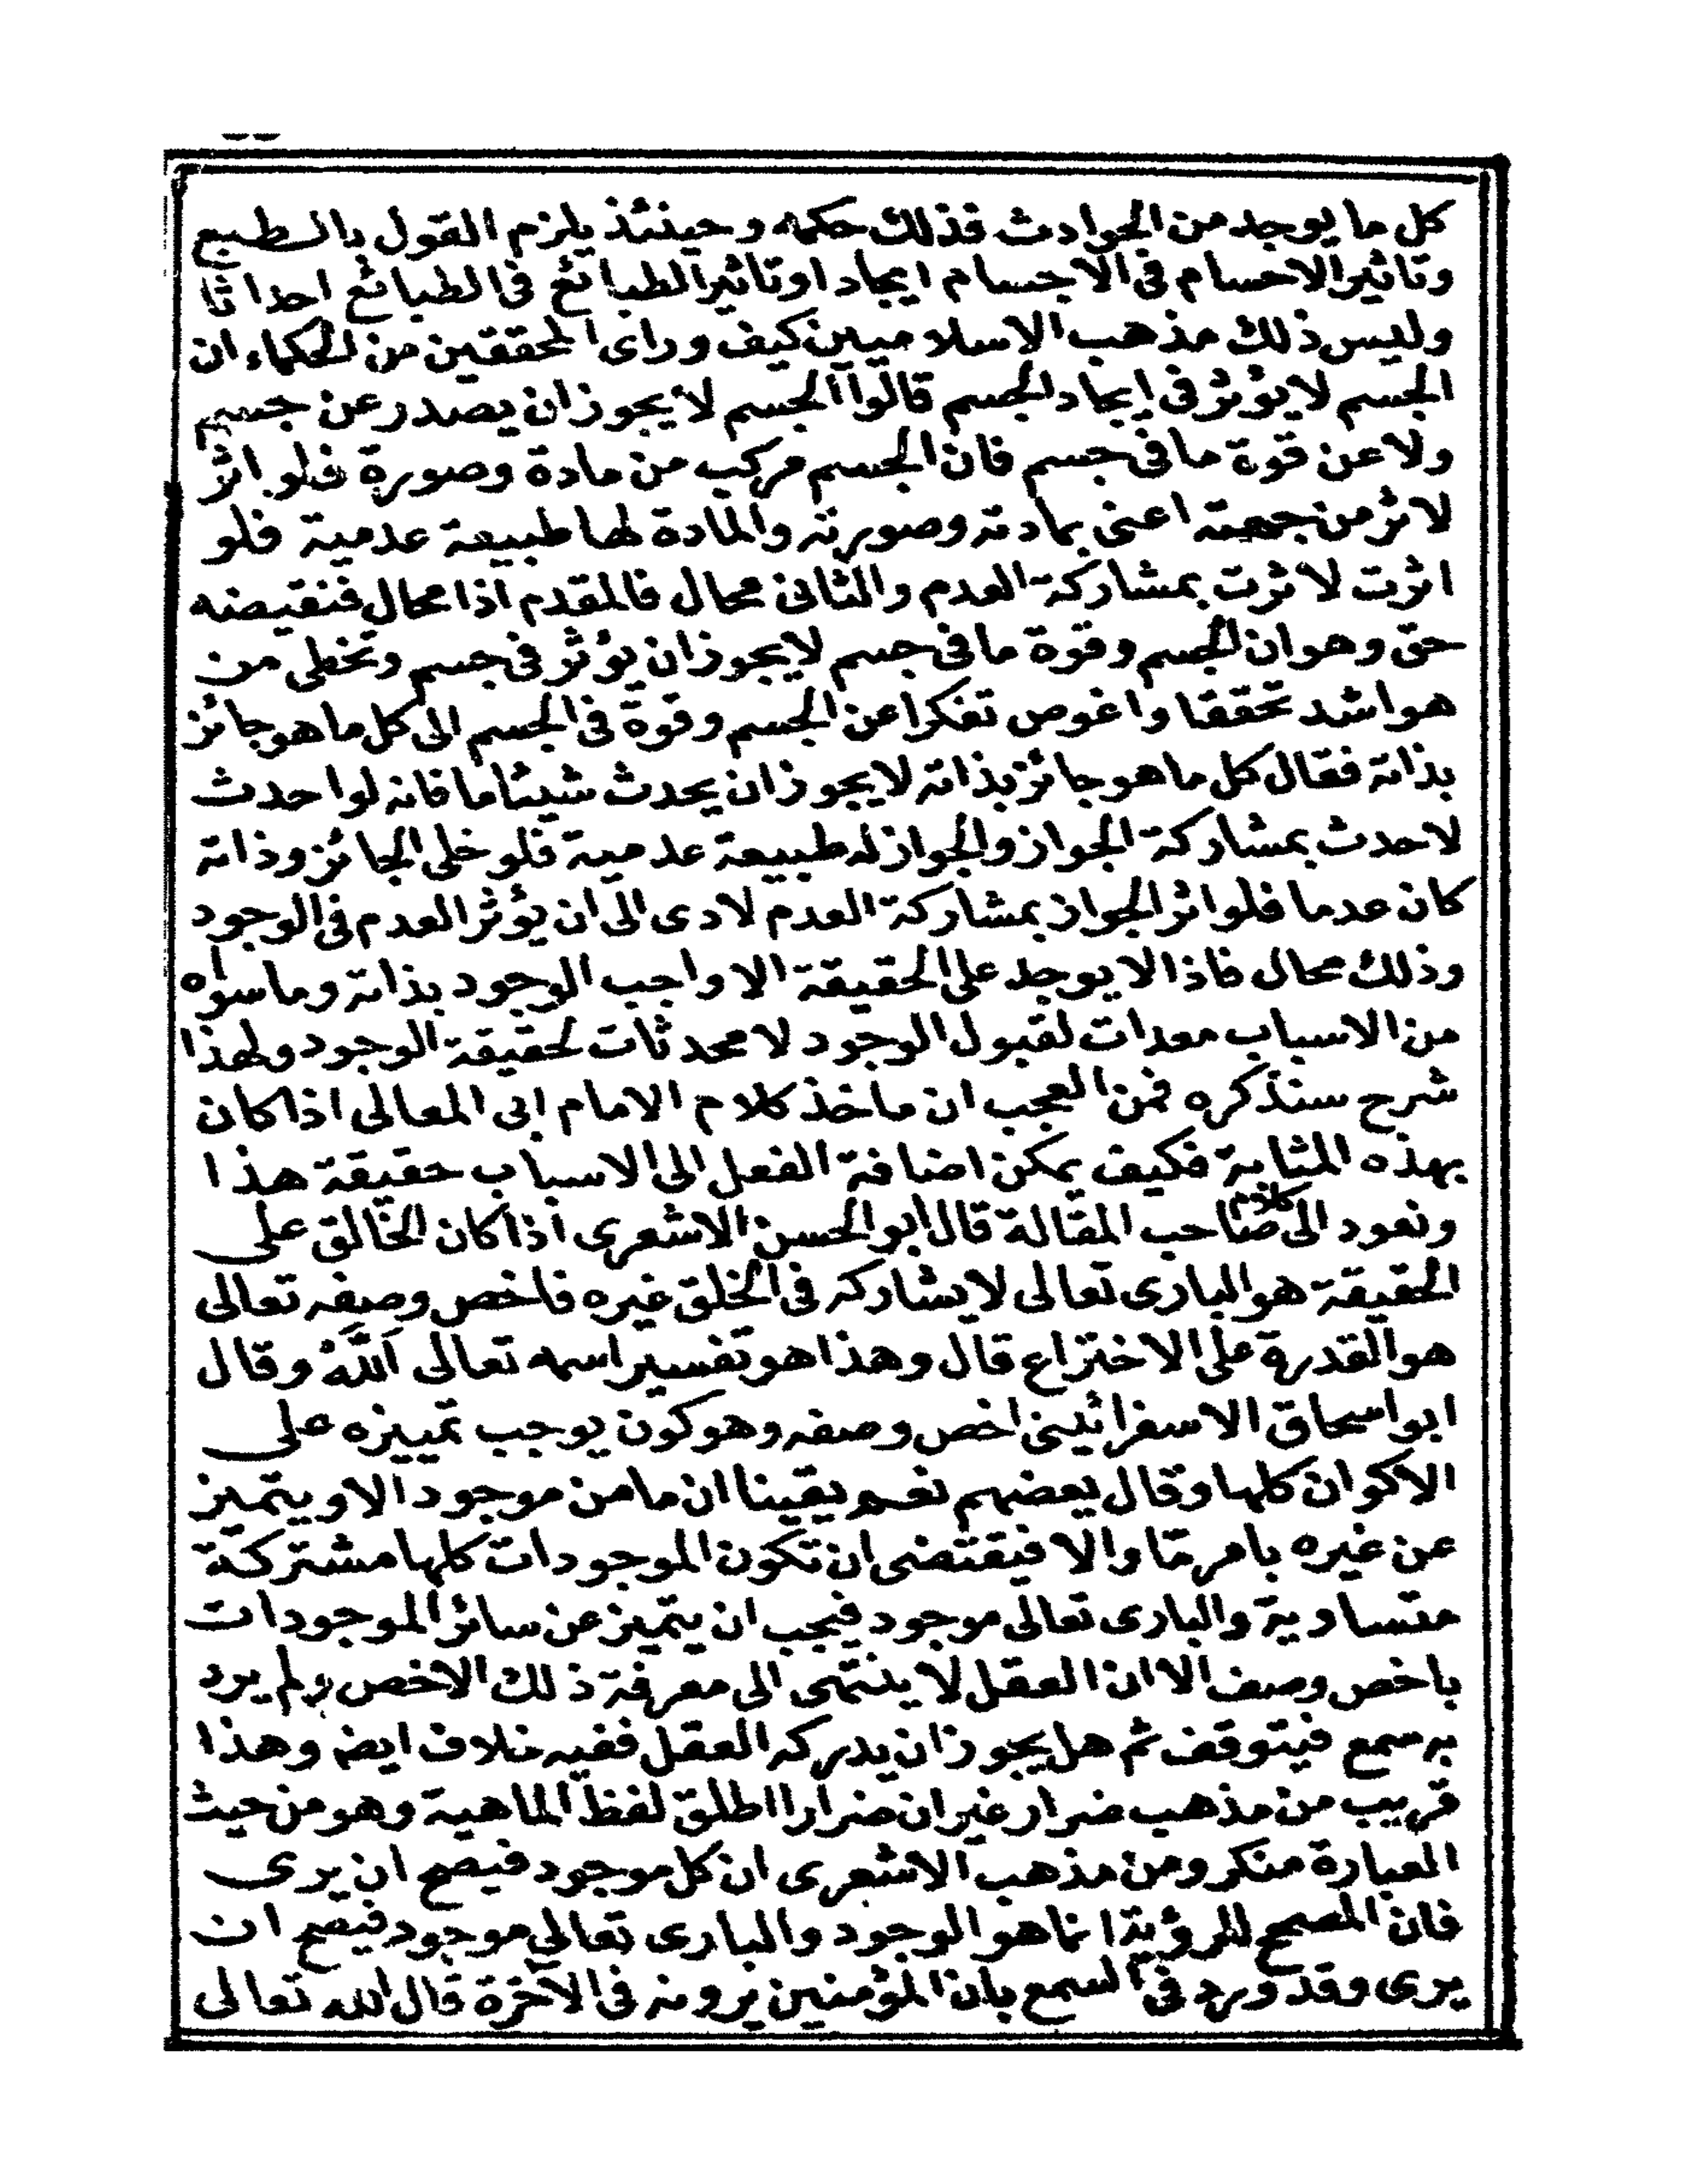 كل ما يوجد من الحوادث فذلك حكمه وحينئذ يلزم القول بالطبع
وتاثير الاجسام فى الاجسام ايجادا وتاثير الطبائع فى الطبائع احداثا
وليس ذلك مذهب الاسلاميين كيف وراى المحققين من الحكماء ان
الجسم لا يؤثر فى ايجاد الجسم قالوا الجسم لا يجوز ان يصدر عن جسم
ولا عن قوة ما فى جسم فان الجسم مركب من مادة وصورة فلو اثر
لاثر من جهته اعنى بمادته وصورته والمادة لها طبيعة عدمية فلو
اثرت لاثرت بمشاركة العدم والثانى محال فالمقدم اذا محال فنقيضه
حق وهو ان الجسم وقوة ما فى جسم لا يجوز ان يؤثر فى جسم وتخطى من
هو اشد تحققا واغوص تفكرا عن الجسم وقوة فى الجسم الى كل ما هو جائز
بذاته فقال كل ما هو جائز بذاته لا يجوز ان يحدث شيئا ما فانه لو احدث
لاحدث بمشاركة الجواز والجواز له طبيعة عدمية فلو خلى الجائز وذاته
كان عدما فلو اثر الجواز بمشاركة العدم لادى الى ان يؤثر العدم فى الوجود
وذلك محال فاذا لا يوجد على الحقيقة الا واجب الوجود بذاته وما سواه
من الاسباب معدات لقبول الوجود لا محدثات لحقيقة الوجود ولهذا
شرح سنذكره فمن العجب ان ماخذ كلام الامام ابى المعالى اذا كان
بهذه المثابة فكيف يمكن اضافة الفعل الى الاسباب حقيقة هذا
ونعود الى كلام صاحب المقالة قال ابو الحسن الاشعرى اذا كان الخالق على
الحقيقة هو البارى تعالى لا يشاركه فى الخلق غيره فاخص وصفه تعالى
هو القدرة على الاختراع قال وهذا هو تفسير اسمه تعالى اَللَّهُ وقال
ابو اسحاق الاسفرائينى اخص وصفه وهو كون يوجب تمييزه على
الاكوان كلها وقال بعضهم نعم يقينا ان ما من موجود الا ويتميز
عن غيره بامر مّا والا فيقتضى ان تكون الموجودات كلها مشتركة
متساوية والبارى تعالى موجود فيجب ان يتميز عن سائر الموجودات
باخص وصف الا ان العقل لا ينتهى الى معرفة ذلك الاخص ولم يرد
به سمع فيتوقف ثم هل يجوز ان يدركه العقل ففيه خلاف ايضه وهذا
قريب من مذهب ضرار غير ان ضرارا اطلق لفظ الماهية وهو من حيث
العبارة منكر ومن مذهب الاشعرى ان كل موجود فيصح ان يرى
فان المصحح للرؤية انما هو الوجود والبارى تعالى موجود فيصح ان
يرى وقد ورد فى السمع بان المؤمنين يرونه فى الآخرة قال الله تعالى